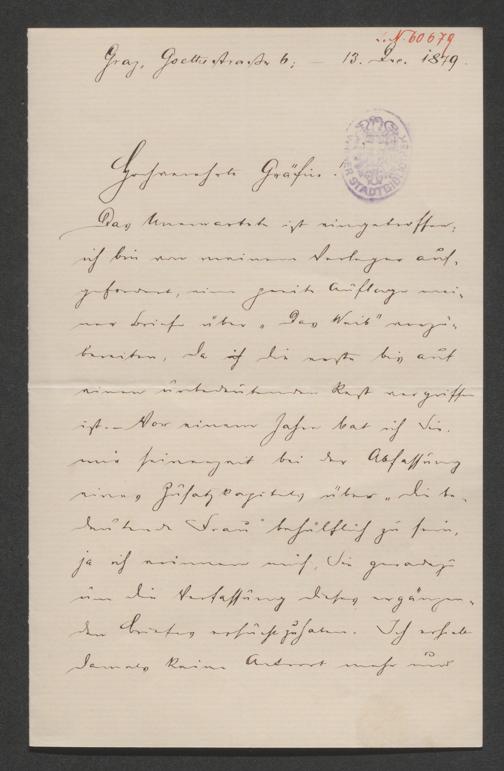 I.N. 60679
Graz, Goethestrasse 6; – 13. Dec. 1879.
Hochverehrte Gräfin.
Das Unerwartete ist eingetroffen;
ich bin von meinem Verleger auf-
gefordert, eine zweite Auflage mei-
ner Briefe über „Das Weib" vorzu-
bereiten, da die erste bis auf
einen unbedeutenden Rest vergriffen
ist. – Vor einem Jahre bat ich Sie,
mir seinerzeit bei der Abfassung
eines Zusatzkapitels über „die be-
deutende Frau" behülflich zu sein,
ja ich erinnere mich, Sie geradezu
um die Verfassung dieses ergänzen-
den Briefes ersucht zu haben. Ich erhielt
damals keine Antwort mehr und